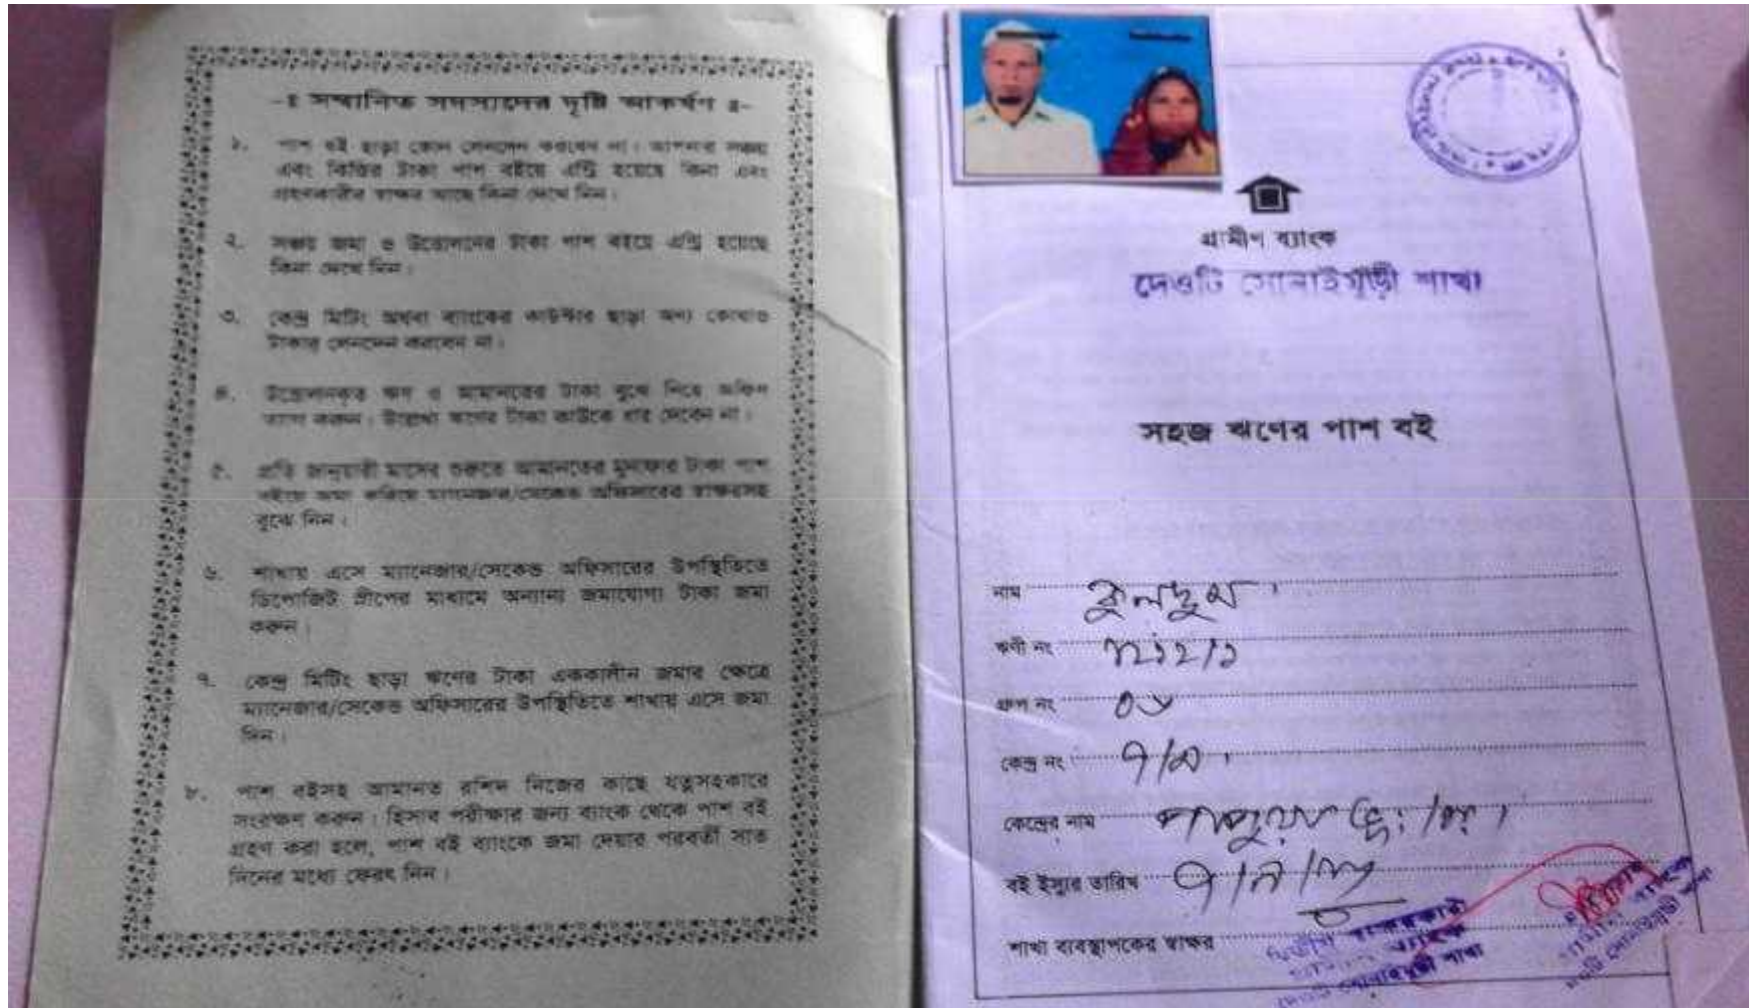 -ঃ সম্মানিত সদস্যদের দৃষ্টি আকর্ষণ ঃ-
১. পাশ বই ছাড়া কোন লেনদেন করবেন না। আপনার সঞ্চয়
এবং কিস্তির টাকা পাশ বইয়ে এন্ট্রি হয়েছে কিনা এবং
গ্রহণকারীর স্বাক্ষর আছে কিনা দেখে নিন।
২. সঞ্চয় জমা ও উত্তোলনের টাকা পাশ বইয়ে এন্ট্রি হয়েছে
কিনা দেখে নিন।
৩. কেন্দ্র মিটিং অথবা ব্যাংকের কাউন্টার ছাড়া অন্য কোথাও
টাকার লেনদেন করবেন না।
৪. উত্তোলনকৃত ঋণ ও আমানতের টাকা বুঝে নিয়ে অফিস
ত্যাগ করুন। উল্লেখ্য ঋণের টাকা কাউকে ধার দেবেন না।
৫. প্রতি জানুয়ারী মাসের শুরুতে আমানতের মুনাফার টাকা পাশ
বইয়ে জমা করিয়ে ম্যানেজার/সেকেন্ড অফিসারের স্বাক্ষরসহ
বুঝে নিন।
৬. শাখায় এসে ম্যানেজার/সেকেন্ড অফিসারের উপস্থিতিতে
ডিপোজিট স্লীপের মাধ্যমে অন্যান্য জমাযোগ্য টাকা জমা
করুন।
৭. কেন্দ্র মিটিং ছাড়া ঋণের টাকা এককালীন জমার ক্ষেত্রে
ম্যানেজার/সেকেন্ড অফিসারের উপস্থিতিতে শাখায় এসে জমা
দিন।
৮. পাশ বইসহ আমানত রশিদ নিজের কাছে যত্নসহকারে
সংরক্ষণ করুন। হিসাব পরীক্ষার জন্য ব্যাংক থেকে পাশ বই
গ্রহণ করা হলে, পাশ বই ব্যাংকে জমা দেয়ার পরবর্তী সাত
দিনের মধ্যে ফেরৎ নিন।
গ্রামীণ ব্যাংক
দেওটি সোনাইমুড়ী শাখা
সহজ ঋণের পাশ বই
নাম কুলছুম।
ঋণী নং
গ্রুপ নং ০৮
কেন্দ্র নং ৭/ম।
কেন্দ্রের নাম
বই ইস্যুর তারিখ
শাখা ব্যবস্থাপকের স্বাক্ষর
দ্বিতীয় স্বাক্ষরকারী
ব্যাংক
দেওটি সোনাইমুড়ী শাখা